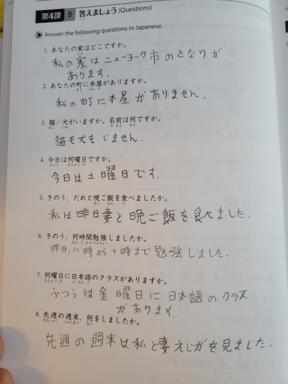 第4課 8 答えましょう (Questions)
Answer the following questions in Japanese.
1. あなたの家はどこですか。
私の家はニューヨーク市のとなりが
あります。
2. あなたの町に本屋がありますか。
私の町に本屋がありません。
3. 猫／犬がいますか。名前は何ですか。
猫も犬もいません。
4. 今日は何曜日ですか。
今日は土曜日です。
5. きのう、だれと晩ご飯を食べましたか。
私は昨日妻と晩ご飯を食べました。
6. きのう、何時間勉強しましたか。
昨日、八時から十時まで勉強しました。
7. 何曜日に日本語のクラスがありますか。
ふつうは金曜日に日本語のクラス
があります。
8. 先週の週末、何をしましたか。
先週の週末は私と妻えいがを見ました。